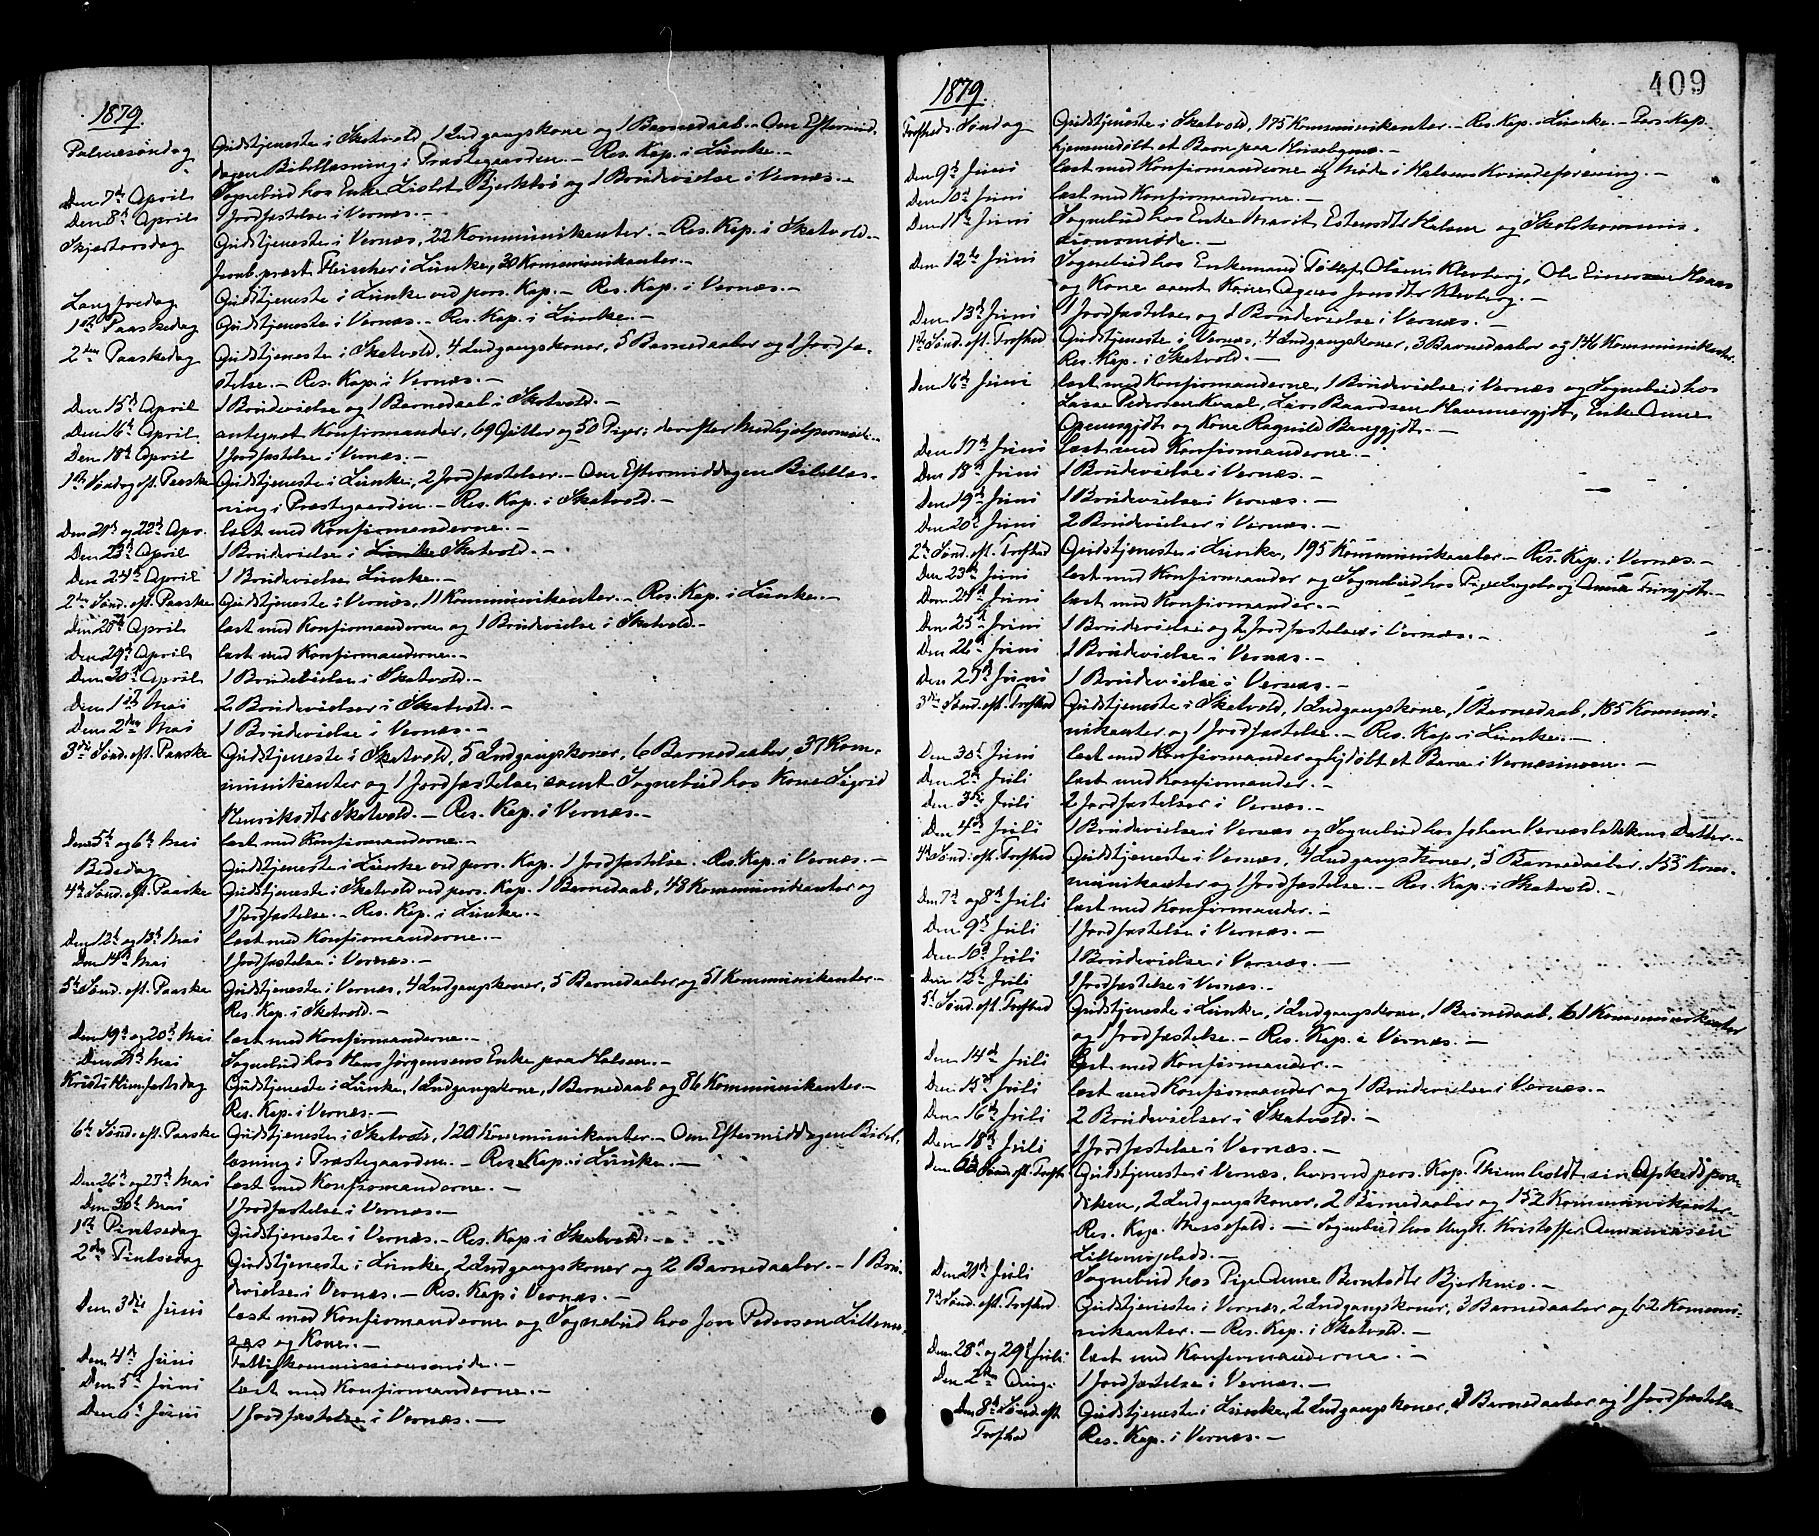 1879.
Palmesøndag Gudstjeneste i Skatvold, 1 Indgangskone og 1 Barnedaab. – Om Eftermid-
dagen Bibellæsning i Præstegaarden. – Res. Kap. i Lånke. –
Den 7de April Sognebud hos Enke Lislet Bjerkbo og 1 Brudevielse i Vernæs. –
Den 8de April 1 Jordfæstelse i Vernæs. –
Skjærtorsdag Gudstjeneste i Vernæs, 22 Kommunikanter. – Res. Kap. i Skatvold. –
præst Fleischer i Lånke, 30 Kommunikanter. –
Langfredag Gudstjeneste i Lånke ved pers. Kap. – Res. Kap. i Vernæs. –
1ste Paaskedag Gudstjeneste i Vernæs. – Res. Kap. i Lånke. –
2den Paaskedag Gudstjeneste i Skatvold, 4 Indgangskoner, 5 Barnedaaber og 1 Jordfæ-
stelse. – Res. Kap. i Vernæs. –
Den 15de April 1 Brudevielse og 1 Barnedaab i Skatvold. –
Den 16de April antegnet Konfirmander, 69 Gutter og 50 Piger; derefter Medhjælpermøde. –
Den 18de April 1 Jordfæstelse i Vernæs. –
1ste Søndag eft. Paaske Gudstjeneste i Lånke, 2 Jordfæstelser. – Om Eftermiddagen Bibellæs-
ning i Præstegaarden. – Res. Kap. i Skatvold. –
Den 21de og 22de Apr. læst med Konfirmanderne. –
Den 23de April 1 Brudevielse i Lånke Skatvold. –
Den 24de April 1 Brudevielse Lånke. –
2den Sønd. eft. Paaske Gudstjeneste i Vernæs, 11 Kommunikanter. – Res. Kap. i Lånke. –
Den 28de April læst med Konfirmanderne og 1 Brudevielse i Skatvold. –
Den 29de April læst med Konfirmanderne. –
Den 30te April 1 Brudevielse i Skatvold. –
Den 1ste Mai 2 Brudevielser i Skatvold. –
Den 2den Mai 1 Brudevielse i Vernæs. –
3die Sønd. eft. Paaske Gudstjeneste i Skatvold, 5 Indgangskoner, 6 Barnedaaber, 37 Kom-
munikanter og 1 Jordfæstelse, samt Sognebud hos Kone Sigrid
Henriksdtr Skatvold. – Res. Kap. i Vernæs. –
Den 5te og 6te Mai læst med Konfirmanderne. –
Bededag Gudstjeneste i Lånke ved pers. Kap. 1 Jordfæstelse. Res. Kap. i Vernæs. –
4de Sønd. eft. Paaske Gudstjeneste i Skatvold ved pers. Kap. 1 Barnedaab, 48 Kommunikanter og
1 Jordfæstelse. – Res. Kap. i Lånke. –
Den 12te og 13de Mai læst med Konfirmanderne. –
Den 14de Mai 1 Jordfæstelse i Vernæs. –
5te Sønd. eft. Paaske Gudstjeneste i Vernæs, 4 Indgangskoner, 5 Barnedaaber og 51 Kommunikanter –
Res. Kap. i Skatvold. –
Den 19de og 20de Mai læst med Konfirmanderne. –
Den 21de Mai Sognebud hos Hans Jørgensens Enke paa Halsen. –
Kristi Himmelfartsdag Gudstjeneste i Lånke, 1 Indgangskone, 1 Barnedaab og 86 Kommunikanter –
Res. Kap. i Vernæs. –
6te Sønd. eft. Paaske Gudstjeneste i Skatvold, 120 Kommunikanter. – Om Eftermiddagen Bibel-
læsning i Præstegaarden. – Res. Kap. i Lånke. –
Den 26de og 27de Mai læst med Konfirmanderne. –
Den 30te Mai 1 Jordfæstelse i Vernæs. –
1ste Pintsedag Gudstjeneste i Vernæs. – Res. Kap. i Skatvold. –
2den Pintsedag Gudstjeneste i Lånke, 2 Indgangskoner og 2 Barnedaaber. – 1 Bru-
devielse i Vernæs. – Res. Kap i Vernæs. –
Den 3die Juni læst med Konfirmanderne og Sognebud hos Jon Pedersen Lillemo-
og Kone. –
Den 4de Juni Fattigkommissionsmøde. –
Den 5te Juni læst med Konfirmanderne. –
Den 6te Juni 1 Jordfæstelse i Vernæs. –
409
1879.
Trefheds Søndag Gudstjeneste i Skatvold, 175 Kommunikanter. – Res. Kap. i Lånke. – Pers. Kap.
hjemmedøbt et Barn paa
Den 9de Juni læst med Konfirmanderne og Møde i Halsens Kvindeforening. –
Den 10de Juni læst med Konfirmanderne. –
Den 11te Juni Sognebud hos Enke Marit Estensdtr Halsen og Skolekommis-
sionsmøde. –
Den 12te Juni Sognebud hos Enkemand Tollef Olsen Kleberg, Ole Einersen
og Kone samt Kone Agnes Jonsdtr Kleberg. –
Den 13de Juni 1 Jordfæstelse og 1 Brudevielse i Vernæs. –
1ste Sønd. eft. Trefhed Gudstjeneste i Vernæs, 4 Indgangskoner, 3 Barnedaaber og 146 Kommunikanter
Res. Kap. i Skatvold. –
Den 16de Juni læst med Konfirmanderne, 1 Brudevielse i Vernæs og Sognebud hos
Lasse Pedersen Kvaal, Lars Baardsen Hammergjdt, Enke Anne
og Kone Ragnild Banggjdt. –
Den 17de Juni læst med Konfirmanderne. –
Den 18de Juni 1 Brudevielse i Vernæs. –
Den 19de Juni 1 Brudevielse i Vernæs. –
Den 20de Juni 2 Brudevielser i Vernæs. –
2den Sønd. eft. Trefhed Gudstjeneste i Lånke, 195 Kommunikanter – Res. Kap. i Vernæs. –
Den 23de Juni læst med Konfirmander og Sognebud hos Pige Ingeborg Anna
Den 24de Juni læst med Konfirmander. –
Den 25de Juni 1 Brudevielse og 2 Jordfæstelser i Vernæs. –
Den 26de Juni 1 Brudevielse i Vernæs. –
Den 27de Juni 1 Brudevielse i Vernæs. –
3die Sønd. eft. Trefhed Gudstjeneste i Skatvold, 1 Indgangskone, 1 Barnedaab, 185 Kommu-
nikanter og 1 Jordfæstelse. – Res. Kap. i Lånke. –
Den 30te Juni læst med Konfirmander og hjdøbt et Barn i Vernæsmoen. –
Den 2den Juli læst med Konfirmander. –
Den 3die Juli 2 Jordfæstelser i Vernæs. –
Den 4de Juli 1 Brudevielse i Vernæs og Sognebud hos Johan Vernæsløkkens Datter. –
4de Sønd. eft. Trefhed Gudstjeneste i Vernæs, 4 Indgangskoner, 5 Barnedaaber, 153 Kom-
munikanter og 1 Jordfæstelse. – Res. Kap. i Skatvold. –
Den 7de og 8de Juli læst med Konfirmander. –
Den 9de Juli 1 Jordfæstelse i Vernæs. –
Den 10de Juli 1 Brudevielse i Vernæs. –
Den 12te Juli 1 Jordfæstelse i Vernæs. –
5te Sønd. eft. Trefhed Gudstjeneste i Lånke, 1 Indgangskone, 1 Barnedaab, 161 Kommunikanter
og 1 Jordfæstelse. – Res. Kap. i Vernæs. –
Den 14de Juli Læst med Konfirmander. –
Den 15de Juli læst med Konfirmander og 1 Brudevielse i Vernæs. –
Den 16de Juli 2 Brudevielser i Skatvold. –
Den 18de Juli 1 Jordfæstelse i Vernæs. –
Den 6te Sønd. eft. Trefh. Gudstjeneste i Vernæs, hvorved pers. Kap. holdt sin Afskedspræ-
diken, 2 Indgangskoner, 2 Barnedaaber og 152 Kommunikanter. –
Res. Kap. – Sognebud hos Ungk. Kristoffer Annanias
Lillemoplads. –
Den 21de Juli Sognebud hos Pige Anne Berntsdtr Bjerknes. –
7de Sønd. eft. Trefhed Gudstjeneste i Vernæs, 2 Indgangskoner, 3 Barnedaaber og 62 Kommu-
nikanter. – Res. Kap. i Skatvold. –
Den 28de og 29de Juli læst med Konfirmanderne. –
Den 2den Aug. 1 Jordfæstelse i Vernæs. –
Den 8de Sønd. eft. Gudstjeneste i Lånke, 2 Indgangskoner, 3 Barnedaaber og 1 Jordfæstelse –
Trefhed Res. Kap. i Vernæs. –